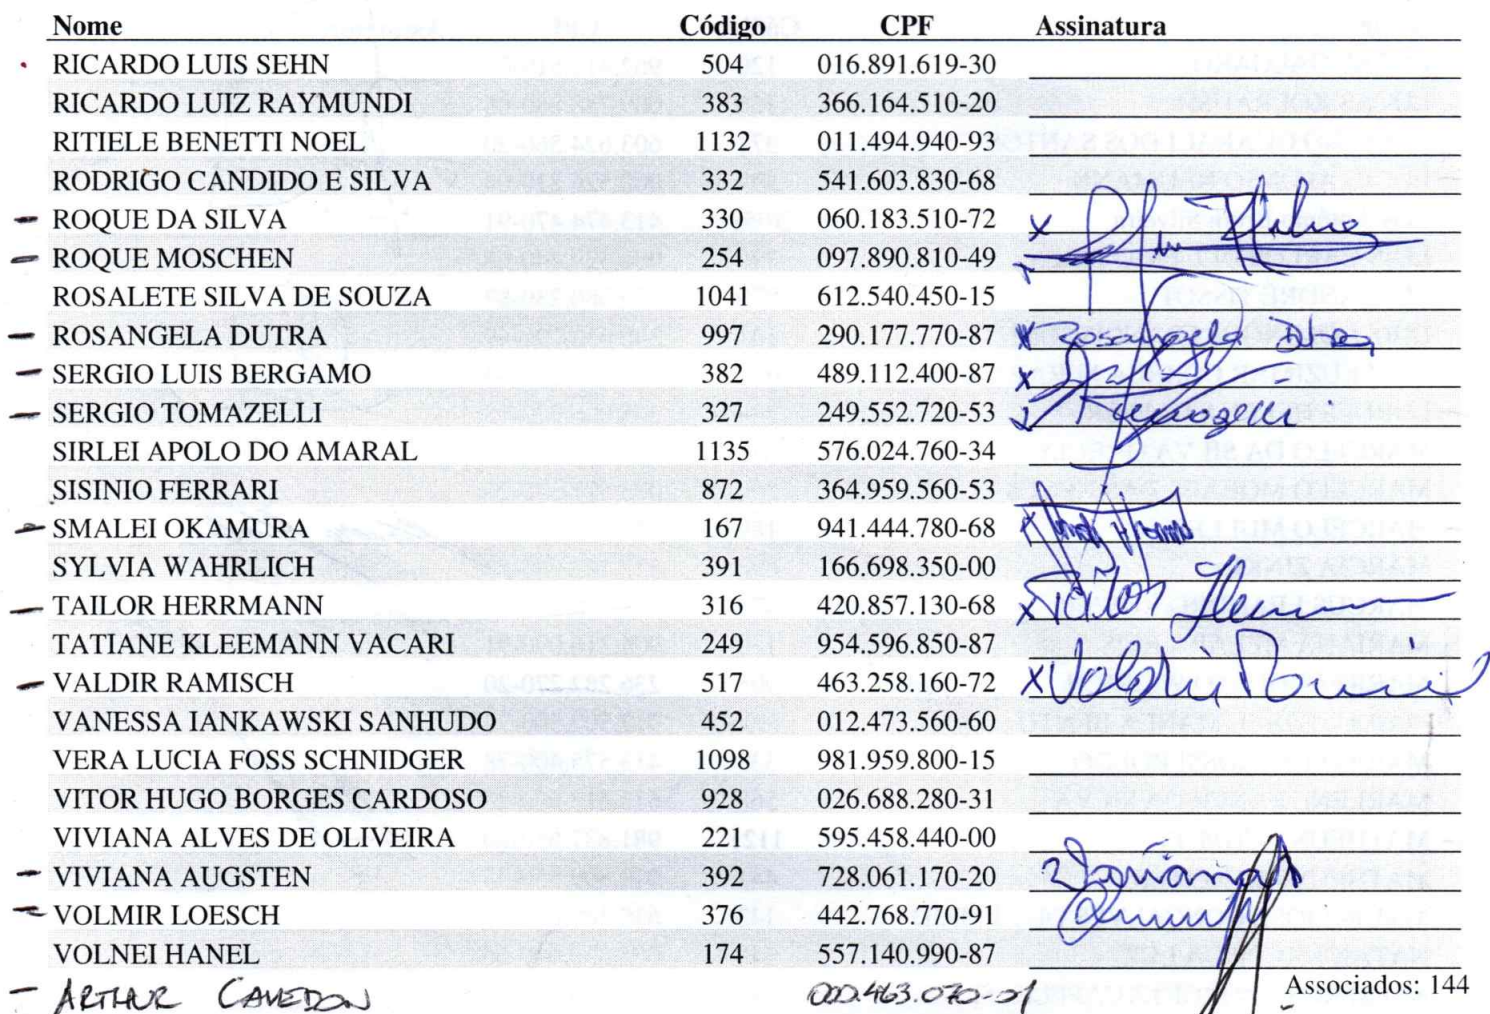 Nome Código CPF Assinatura
RICARDO LUIS SEHN 504 016.891.619-30
RICARDO LUIZ RAYMUNDI 383 366.164.510-20
RITIELE BENETTI NOEL 1132 011.494.940-93
RODRIGO CANDIDO E SILVA 332 541.603.830-68
- ROQUE DA SILVA 330 060.183.510-72 x
- ROQUE MOSCHEN 254 097.890.810-49
ROSALETE SILVA DE SOUZA 1041 612.540.450-15
- ROSANGELA DUTRA 997 290.177.770-87 x Rosangela Dutra
- SERGIO LUIS BERGAMO 382 489.112.400-87 x
- SERGIO TOMAZELLI 327 249.552.720-53 x Tomazelli
SIRLEI APOLO DO AMARAL 1135 576.024.760-34
SISINIO FERRARI 872 364.959.560-53
- SMALEI OKAMURA 167 941.444.780-68 x
SYLVIA WAHRLICH 391 166.698.350-00
- TAILOR HERRMANN 316 420.857.130-68 x Tailor
TATIANE KLEEMANN VACARI 249 954.596.850-87
- VALDIR RAMISCH 517 463.258.160-72 x Valdir
VANESSA IANKAWSKI SANHUDO 452 012.473.560-60
VERA LUCIA FOSS SCHNIDGER 1098 981.959.800-15
VITOR HUGO BORGES CARDOSO 928 026.688.280-31
VIVIANA ALVES DE OLIVEIRA 221 595.458.440-00
- VIVIANA AUGSTEN 392 728.061.170-20
- VOLMIR LOESCH 376 442.768.770-91
VOLNEI HANEL 174 557.140.990-87
- ARTHUR CAVEDON 000.463.070-01 Associados: 144